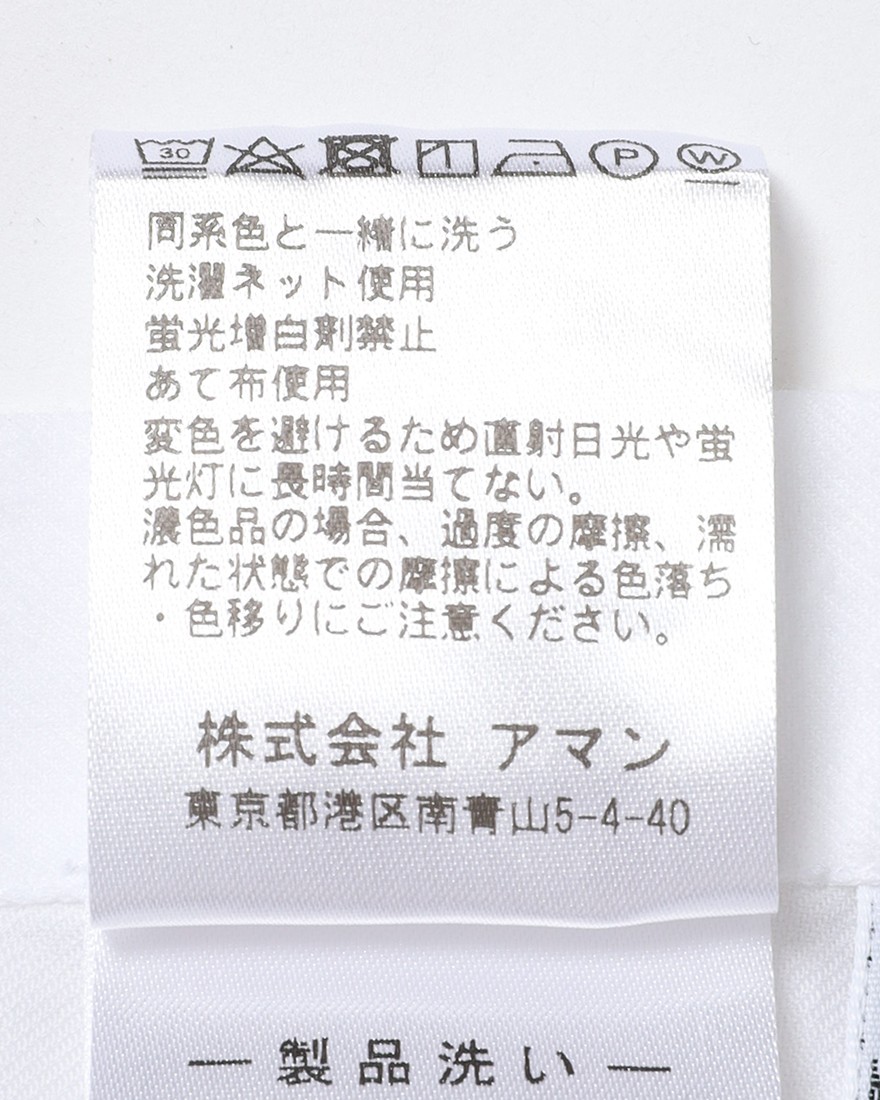 30 P W
同系色と一緒に洗う
洗濯ネット使用
蛍光増白剤禁止
あて布使用
変色を避けるため直射日光や蛍
光灯に長時間当てない。
濃色品の場合、過度の摩擦、濡
れた状態での摩擦による色落ち
・色移りにご注意ください。
株式会社 アマン
東京都港区南青山5-4-40
―製品洗い―